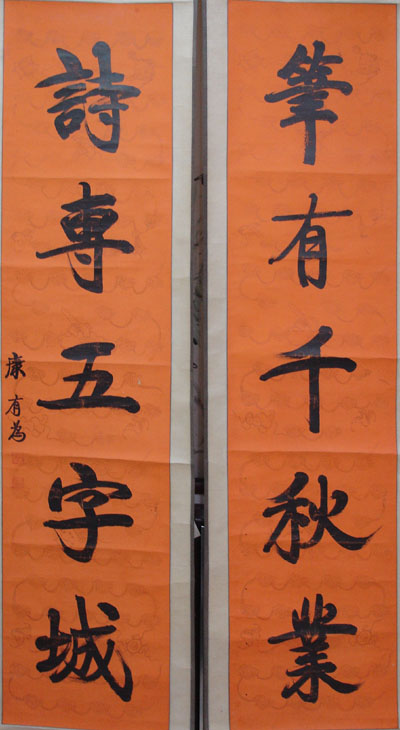 筆有千秋業
詩專五字城
康有為